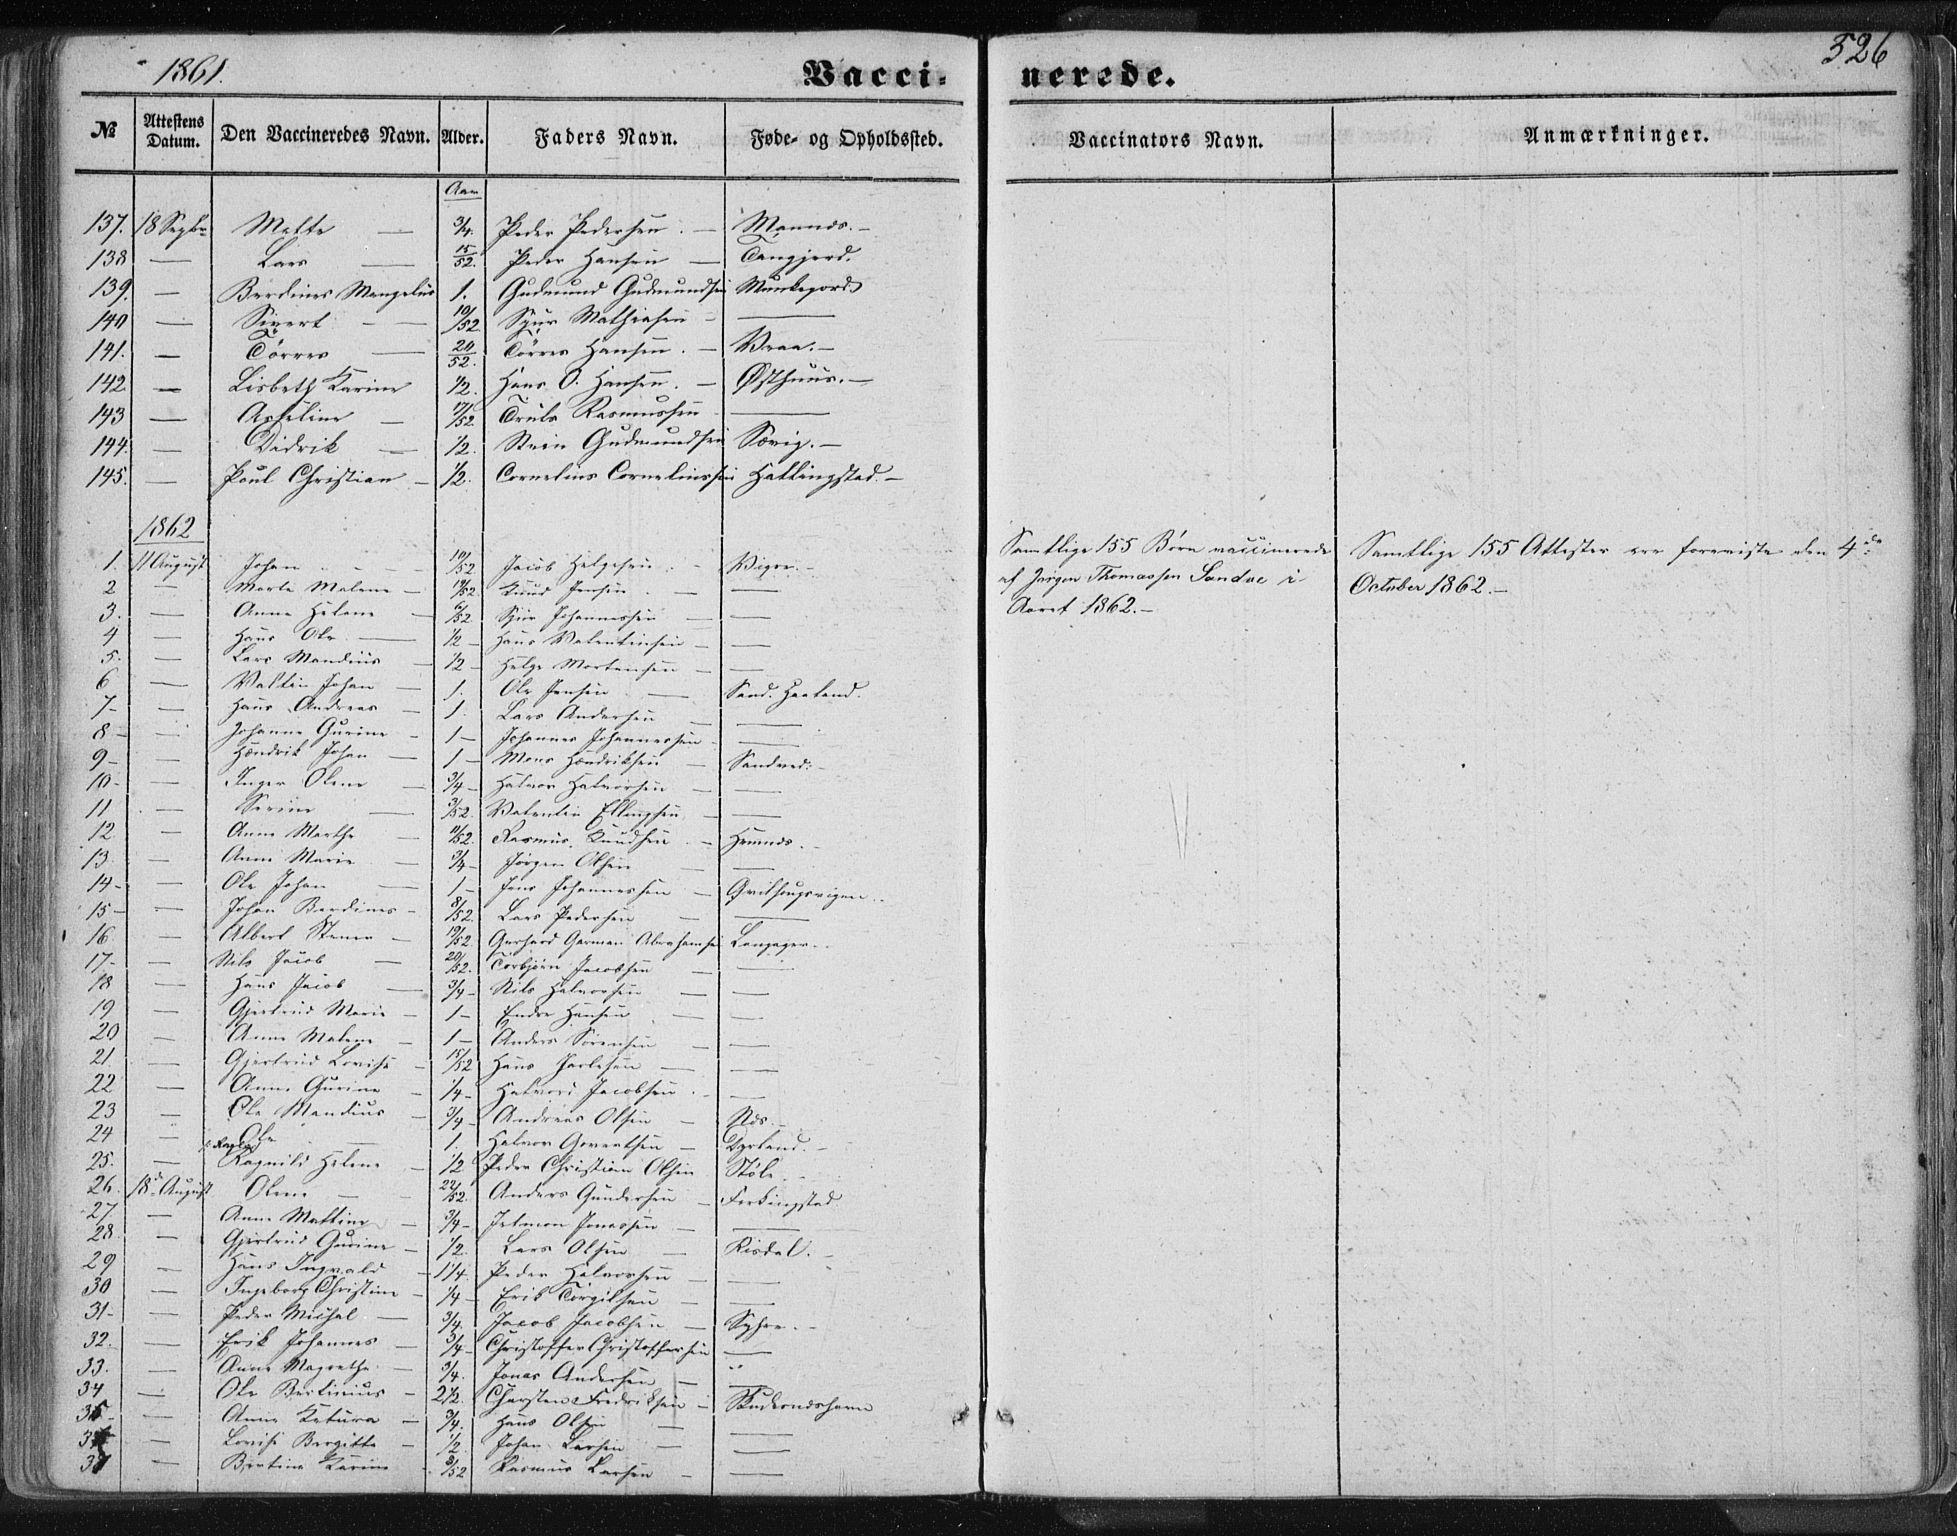 1861.
Vacci-
nerede.
526
№
Attestens Datum.
Den Vaccineredes Navn.
Alder.
Faders Navn.
Føde- og Opholdssted.
Vaccinators Navn.
Anmærkninger.
Aar
137. 18 Septbr Mette — 3/4. Peder Pedersen. — Mannes. —
138 — Lars — 15/52. Peder Hansen — Tangjerd.
139. — Berdines Mangelus 1. Gudmund Gudmundsen Munkejord
140 — Sivert — 10/52 Sjur Mathiasen — —
141. — Törres — 20/52. Törres Hansen. — Vraa. —
142 — Lisbeth Karine 1/2. Hans O. Hansen. — Østhuus. —
143 — Axeline — 17/52 Truls Rasmussen —
144. — Didrik — 1/2. Stein Gudmundsen Sævig. —
145. — Poul Christian — 1/2. Cornelius Corneliussen Hallingstad. —
1862
1. 11 August Johan — 10/52 Jacob Helgesen. — Vigre. —
2 — Marte Malene — 19/52 Knud Jensen. — —
3. — Anne Helene — 6/52 Sjur Johannessen — —
4 — Hans Ole — 1/2 — Hans Valentinsen — —
5. — Lars Mandius — 1/2 — Helge Mortensen — —
6 — Valtin Johan — 1. Ole Jensen — Sand. Haaland.
7 — — Hans Andreas — 1. Lars Andersen — —
8 — — Johanne Gurine — 1 — Johannes Johannessen — —
9 — — Hændrik Johan — 1 — Mons Hændriksen — Sandved.
10 — — Inger Olene — 3/4 — Halvor Halvorsen — —
11 — Serine — 3/52. Valentin Ellingsen — —
12 — Anne Marthe — 11/52. Rasmus Knudsen — Hemnes. —
13. — Anne Marie — 3/4 — Jörgen Olsen — —
14 — — Ole Johan — 1 — Jens Johannessen — Grilhougvigen.
15 — — Johan Berdines — 8/52. Lars Pedersen — —
16 — Albert Stener — 19/52 Gerhard German Abrahamsen Langager.
17 — — Nils Jacob — 20/52. Torbjörn Jacobsen — —
18 — Hans Jacob — 3/4 — Nils Halvorsen — —
19 — Gjertrud Marie — 1 — Endre Hansen — —
20 — Anne Malene — 1 — Anders Sörensen — —
21. — Gjertrud Lovise — 15/52 Hans Jarlesen — —
22 — Anne Gurine — 1/4 — Halvord Jacobsen — —
23 — Ole Mandius — 3/4 — Andreas Olsen — Nes. —
24 — Ole — 1. Halvor Govertsen — Dyrland. —
25. — Ragnild Helene — 1/2 Peder Christian Olsen Støle —
26. 18de August Olene — 22/52. Anders Gundersen — Ferkingstad
27 — Anne Mattine — 3/4 — Jetmon Jonassen — —
28 — Gjertrud Gurine — 1/2. Lars Olsen — Risdal. —
29 — Hans Ingvald — 1 1/4. Peder Halvorsen — —
30 — Ingeborg Christine — 1/4 — Erik Torgilsen — —
31 — — Peder Michal — 3/4. Jacob Jacobsen — Syhre. —
32. — Erik Johannes — 3/4 — Christoffer Christoffersen —
33. — Anne Magrethe — 3/4. Jonas Andersen — "
34 — Ole Bertinius — 2 1/2. Charsten Fredriksen — Skudesneshavn
35 — — Anne Katura — 3/4. Hans Olsen — —
36 — Lovise Bergitte — 1/2. Johan Larsen — —
37 — Bertine Karine — 8/52 Rasmus Larsen — —
Samtlige 155 Børn vaccinerede
af Jørgen Thomassen Sandve i
Aaret 1862. —
Samtlige 155 Attester ere foreviste den 4de
October 1862. —